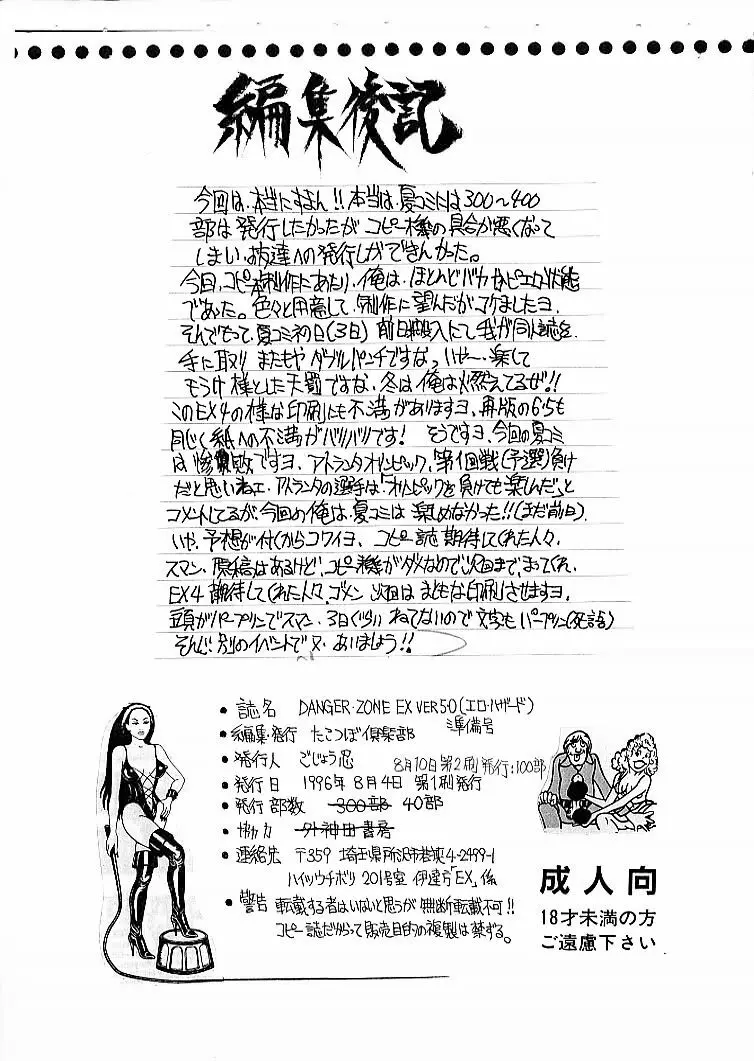 編集後記
今回は、本当にすまん!!本当は、夏コミには300〜400
部は発行したかったが コピー機の具合が悪くなって
しまい、お友達への発行しかできんかった。
今回、コピー本制作にあたり、俺は、ほとんどバカかピエロ状態
であった。色々と用意して、制作に望んだがコケましたヨ、
そんでもって、夏コミ初日(3日)前日搬入にて我が同人誌を、
手に取り またもや ダブルパンチですなっ いやー、楽して
もうけ様とした天罰ですな、冬は俺は燃えてるぜ!!
このEX4の様な印刷にも不満がありますヨ、再版の6・5も
同じく紙への不満がバリバリです! そうですヨ、今回の夏コミ
は惨敗ですヨ、アトランタオリンピック、第1回戦(予選)負け
だと思いねェ、アトランタの選手は「オリンピックを負けても楽しんだ」と
コメントしてるが、今回の俺は、夏コミは 楽しめなかった!!(まだ前日)、
いや、予想が付くからコワイヨ、コピー誌 期待してくれた人々、
スマン、原稿はあるけど、コピー機がダメなので次回まで、まってくれ、
EX4 期待してくれた人々、ゴメン 次回は まともな印刷させますヨ、
頭がパープリンでスマン、3日ぐらい ねてないので 文字も パープリン(死語)
そんじゃ 別のイベントで 又、あいましょう!!
● 誌名 DANGER・ZONE EX VER5・0(エロ・ハザード)
準備号
● 編集・発行 たこつぼ倶楽部
● 発行人 ごじょう忍
8月10日第2刷発行:100部
● 発行日 1996年8月4日 第1刷発行
● 発行部数 300部 40部
● 外神田書房
● 連絡先 〒359 埼玉県所沢市若狭4-2499-1
ハイツウチボリ 201号室 伊達方「EX」係
● 警告 転載する者はいないと思うが 無断転載不可!!
コピー誌だからって販売目的の複製は禁ずる。
成人向
18才未満の方
ご遠慮下さい